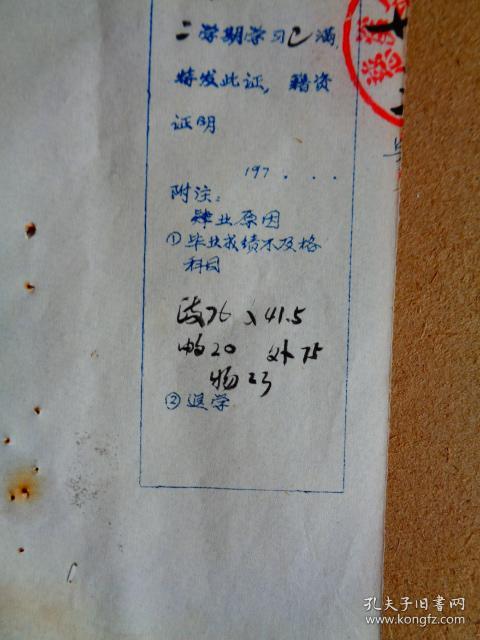 二学期学习已满,
特发此证, 籍资
证明
197 . . .
附注:
肄业原因
①毕业成绩不及格
科目
政76 41.5
20 外75
物23
②退学
孔夫子旧书网
www.kongfz.com